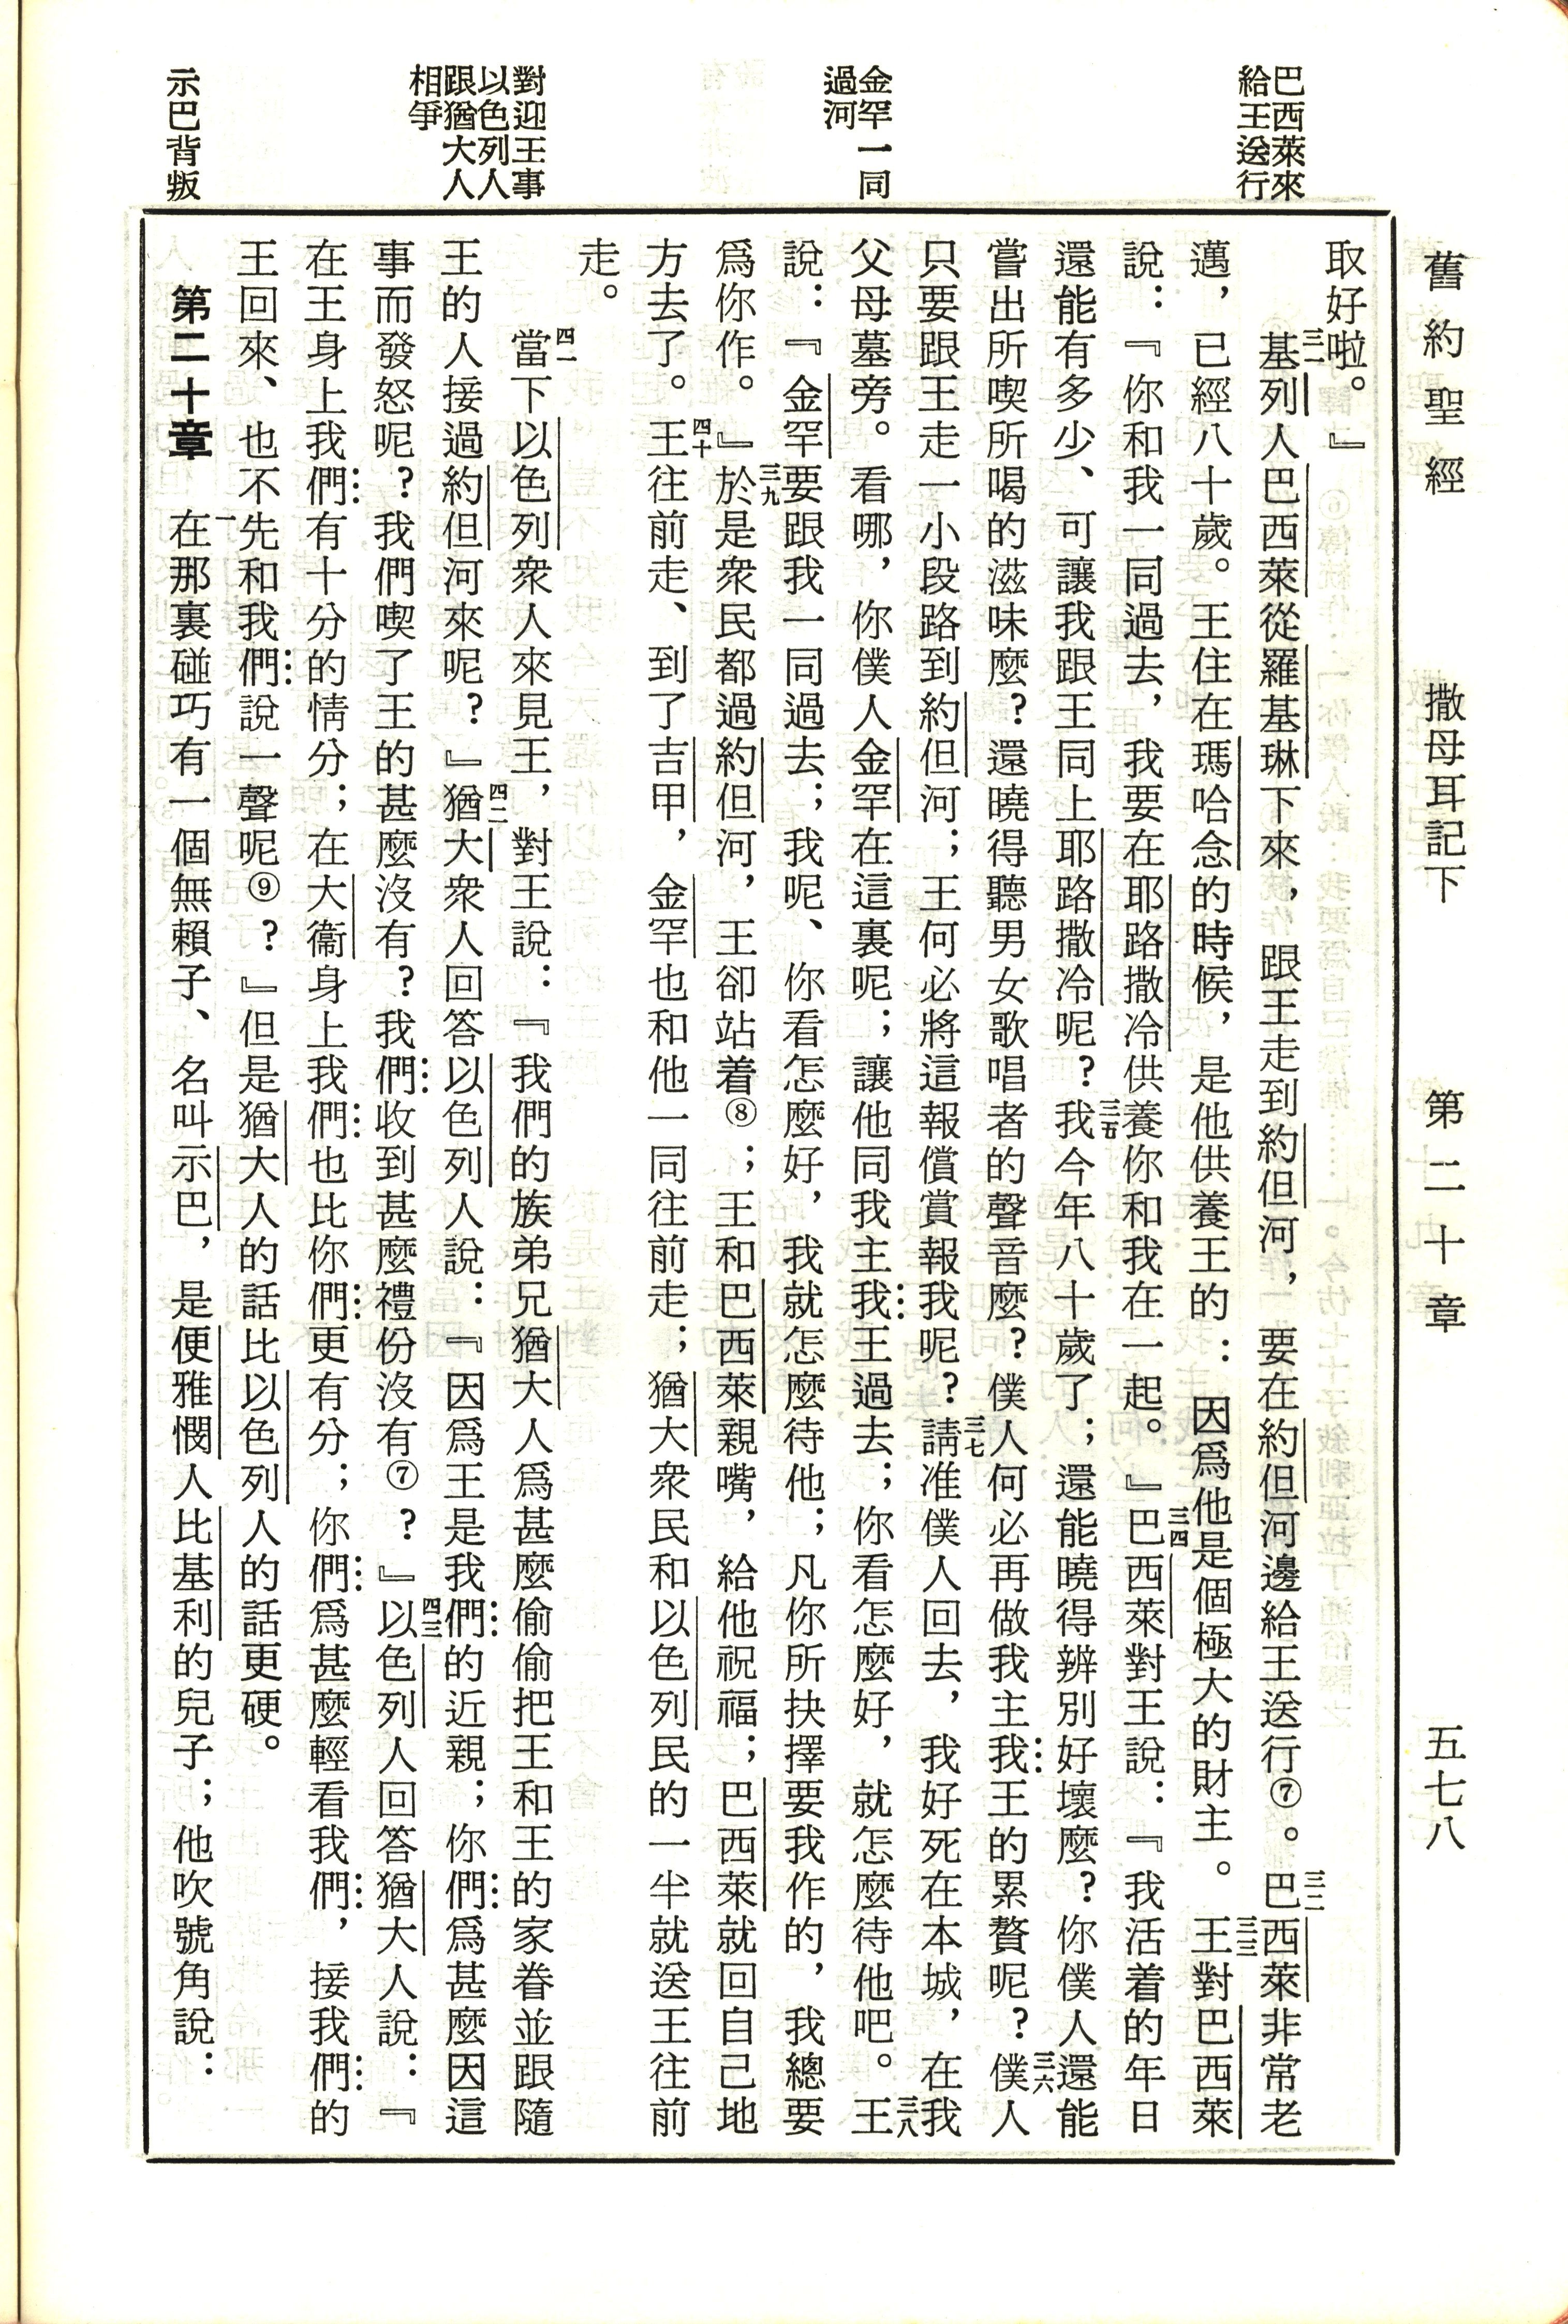 舊約聖經　撒母耳記下　第二十章　五七八
巴西萊來
給王送行
金罕一同
過河
對迎王事
以色列人
跟猶大人
相爭
示巴背叛
取好啦。』
三一基列人巴西萊從羅基琳下來，跟王走到約但河，要在約但河邊給王送行⑦。三二巴西萊非常老
邁，已經八十歲。王住在瑪哈念的時候，是他供養王的：因爲他是個極大的財主。三三王對巴西萊
說：『你和我一同過去，我要在耶路撒冷供養你和我在一起。』三四巴西萊對王說：『我活着的年日
還能有多少、可讓我跟王同上耶路撒冷呢？三五我今年八十歲了；還能曉得辨別好壞麼？你僕人還能
嘗出所喫所喝的滋味麼？還曉得聽男女歌唱者的聲音麼？僕人何必再做我主我王的累贅呢？三六僕人
只要跟王走一小段路到約但河；王何必將這報償賞報我呢？三七請准僕人回去，我好死在本城，在我
父母墓旁。看哪，你僕人金罕在這裏呢；讓他同我主我王過去；你看怎麼好，就怎麼待他吧。三八王
說：『金罕要跟我一同過去；我呢、你看怎麼好，我就怎麼待他；凡你所抉擇要我作的，我總要
爲你作。』三九於是衆民都過約但河，王卻站着⑧；王和巴西萊親嘴，給他祝福；巴西萊就回自己地
方去了。四十王往前走、到了吉甲，金罕也和他一同往前走；猶大衆民和以色列民的一半就送王往前
走。
四一當下以色列衆人來見王，對王說：『我們的族弟兄猶大人爲甚麼偷偷把王和王的家眷並跟隨
王的人接過約但河來呢？』四二猶大衆人回答以色列人說：『因爲王是我們的近親；你們爲甚麼因這
事而發怒呢？我們喫了王的甚麼沒有？我們收到甚麼禮份沒有⑦？』四三以色列人回答猶大人說：『
在王身上我們有十分的情分；在大衞身上我們也比你們更有分；你們爲甚麼輕看我們，接我們的
王回來、也不先和我們說一聲呢⑨？』但是猶大人的話比以色列人的話更硬。
第二十章　一在那裏碰巧有一個無賴子、名叫示巴，是便雅憫人比基利的兒子；他吹號角說：